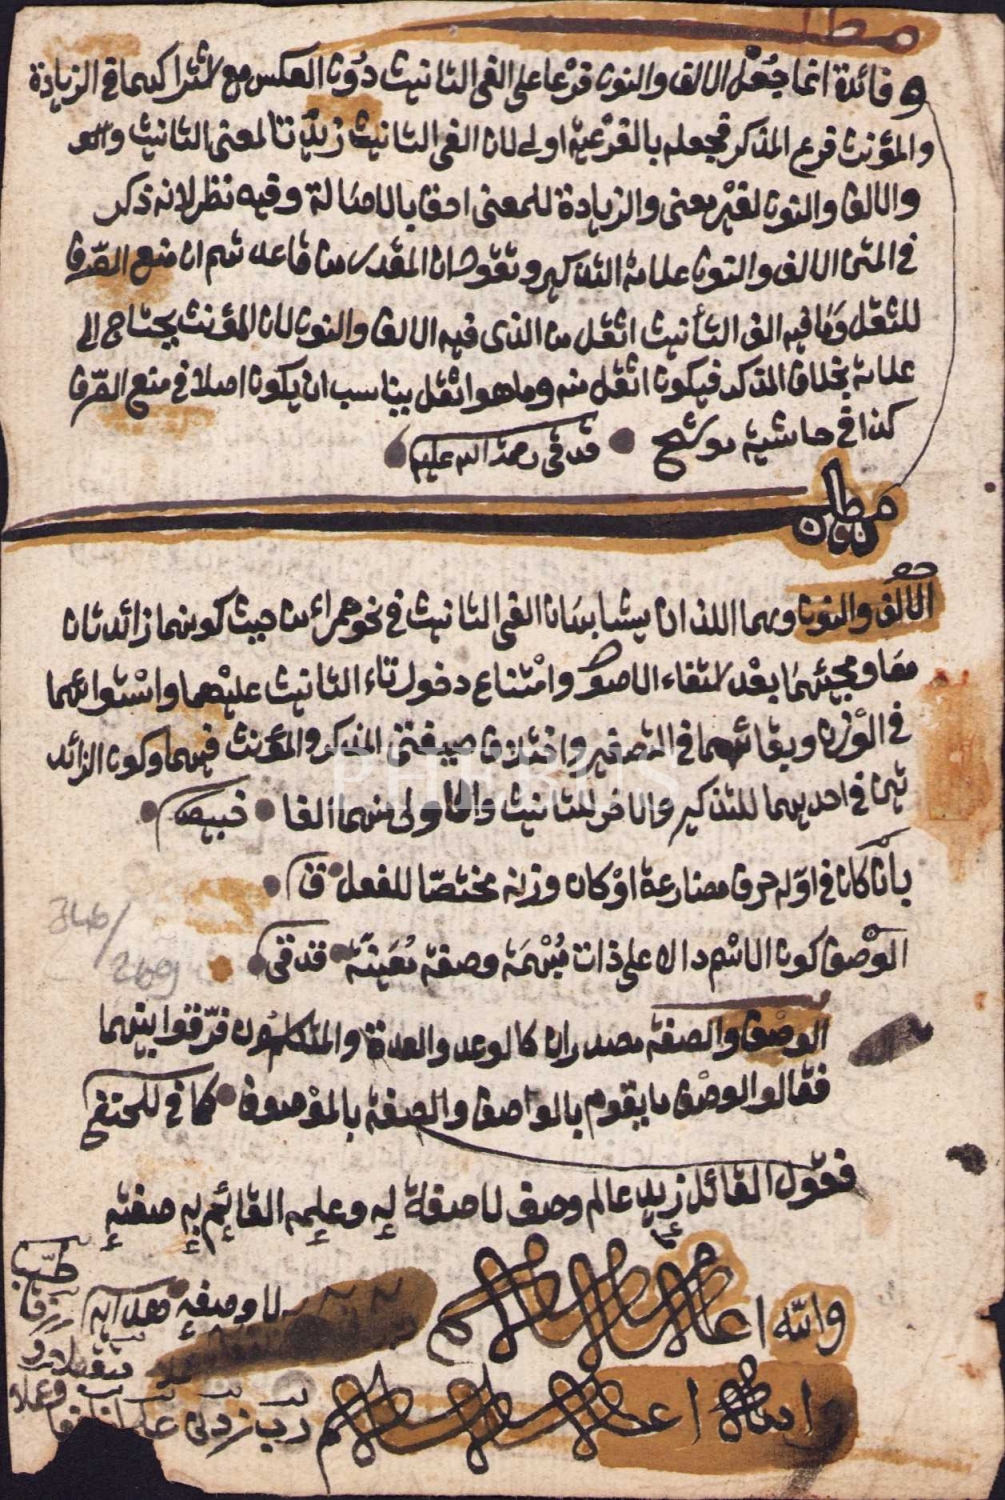 مطلب
وفائدة انما جعل الالف والنون فرعا على الفى التانيث دون العكس مع اشتراكهما فى الزيادة
والمؤنث فرع المذكر فجعله بالفرعية اولى لان الفى التانيث زيدتا لمعنى التانيث
والالف والنون لغير معنى والزيادة للمعنى احق بالاصالة وفيه نظر لانه ذكر
فى المتن الالف والنون علامة التذكير وتقول ان المقدر من قاعله ثم ان منع الصرف
للثقل وما فيه الف التأنيث اثقل من الذى فيه الالف والنون لان المؤنث يحتاج الى
علامة بخلاف المذكر فيكون اثقل منه وما هو اثقل يناسب ان يكون اصلا فى منع الصرف
كذا فى حاشية قدقى رحمة الله عليه
مطلب
الالف والنون وهما اللذان يشابهان الفى التانيث فى نحو حمراء من حيث كونهما زائدتان
معا ومجيئهما بعد استفاء الاصول وامتناع دخول تاء التانيث عليهما واستوائهما
فى الوزن وبقائهما فى التصغير واختلاف صيغتى المذكر والمؤنث فيهما وكون الزائد
تين فى احديهما للتذكير والاخر للتانيث والاولى منهما الفا خبيصى
بان كان فى اوله حرف مضارعة او كان وزنه مختصا للفعل ق
الوصف كون الاسم دالا على ذات مبهمة وصفة معينة قدقى
الوصف والصفة مصدران كالوعد والعدة والمتكلمون فرقوا بينهما
فقالوا الوصف ما يقوم بالواصف والصفة بالموصوف كما فى
فقول القائل زيد عالم وصف لا صفة له وعلمه القائم به صفته
لا وصفه هكذا
والله اعلم
والله اعلم
رب زدنى علما
PHEBUS
346/
269